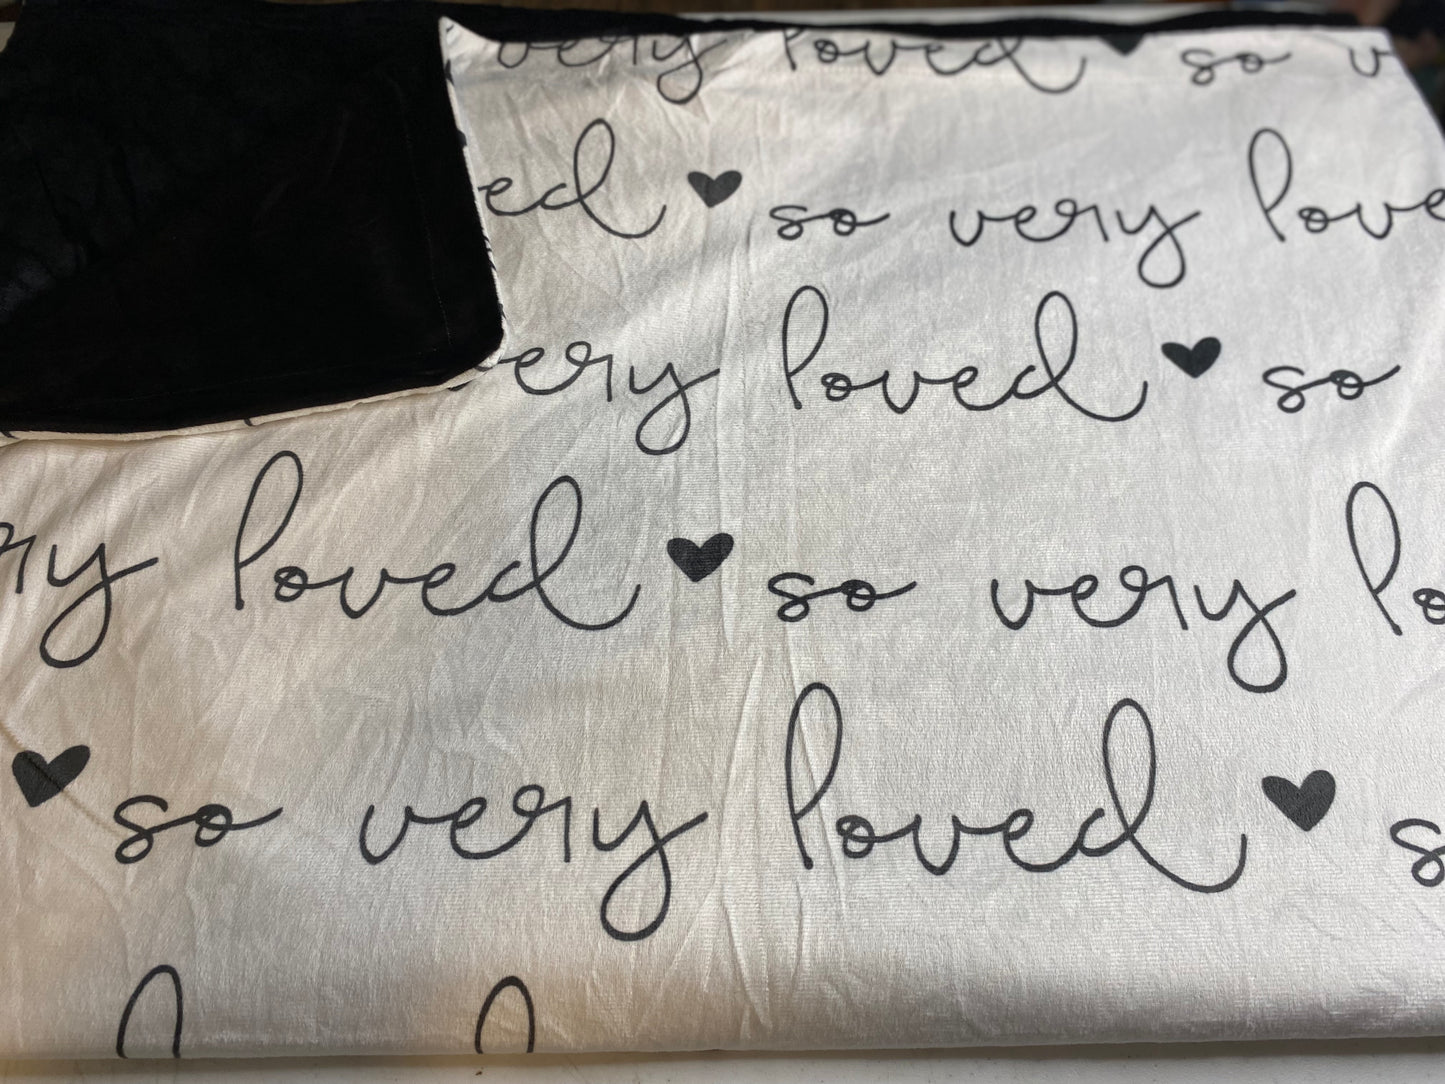 very loved ♥ so v
ed ♥ so very love
very loved ♥ so
ry loved ♥ so very lo
♥ so very loved ♥ s